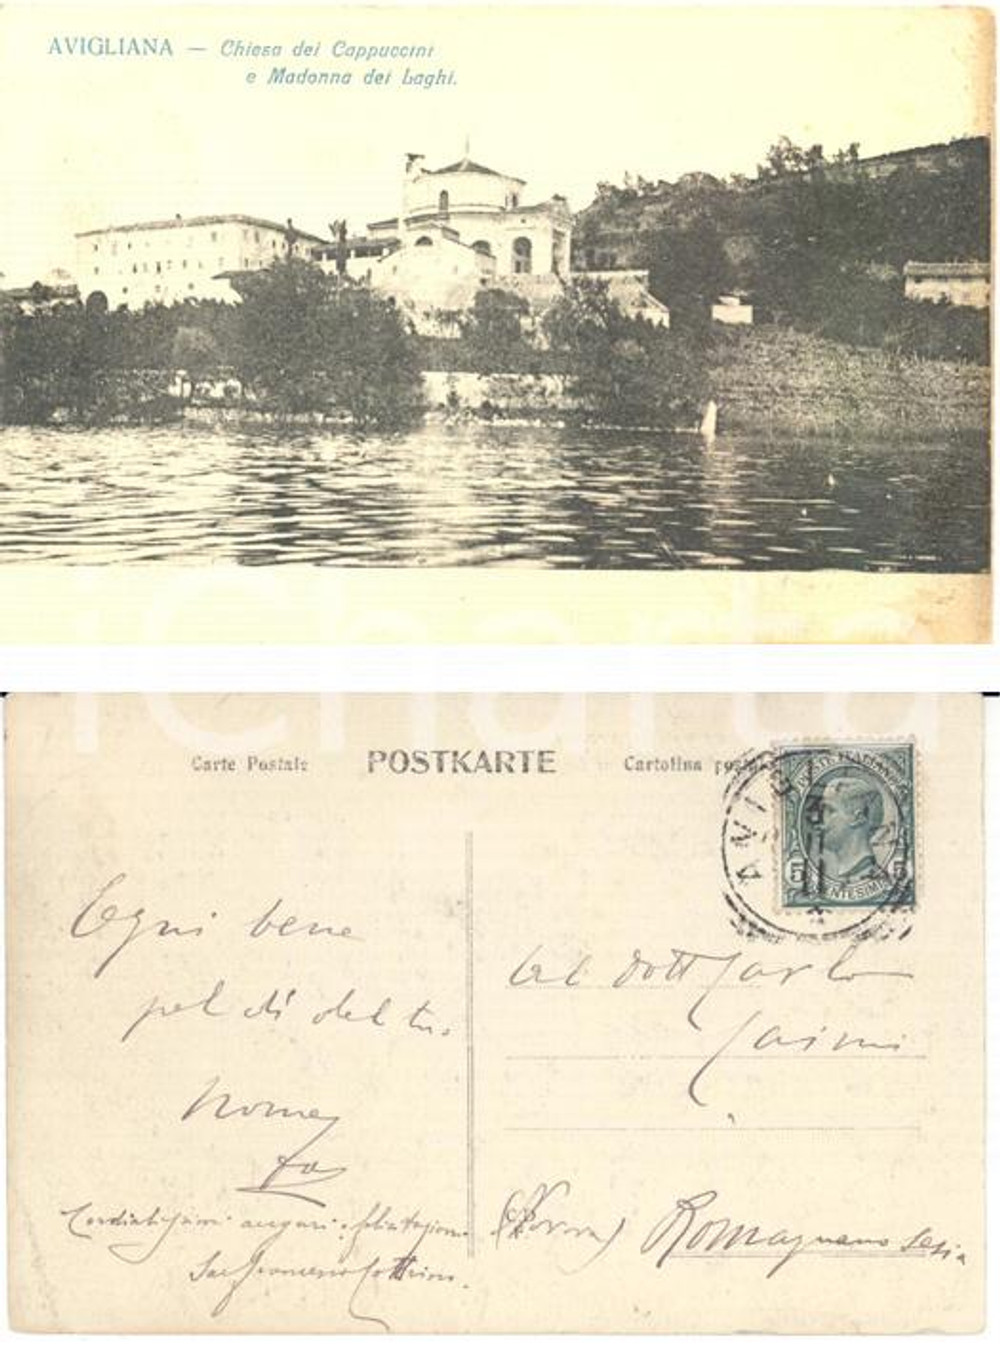 AVIGLIANA — Chiesa dei Cappuccini
e Madonna dei Laghi.
iCharta
Carte Postale POSTKARTE Cartolina postale
AVIG
POSTE ITALIANE
5 CENTESIMI 5
Ogni bene
pel dì del tuo
nome
al dott Carlo
(Novara) Romagnano Sesia
Cordialissimi auguri e felicitazioni
Francesco